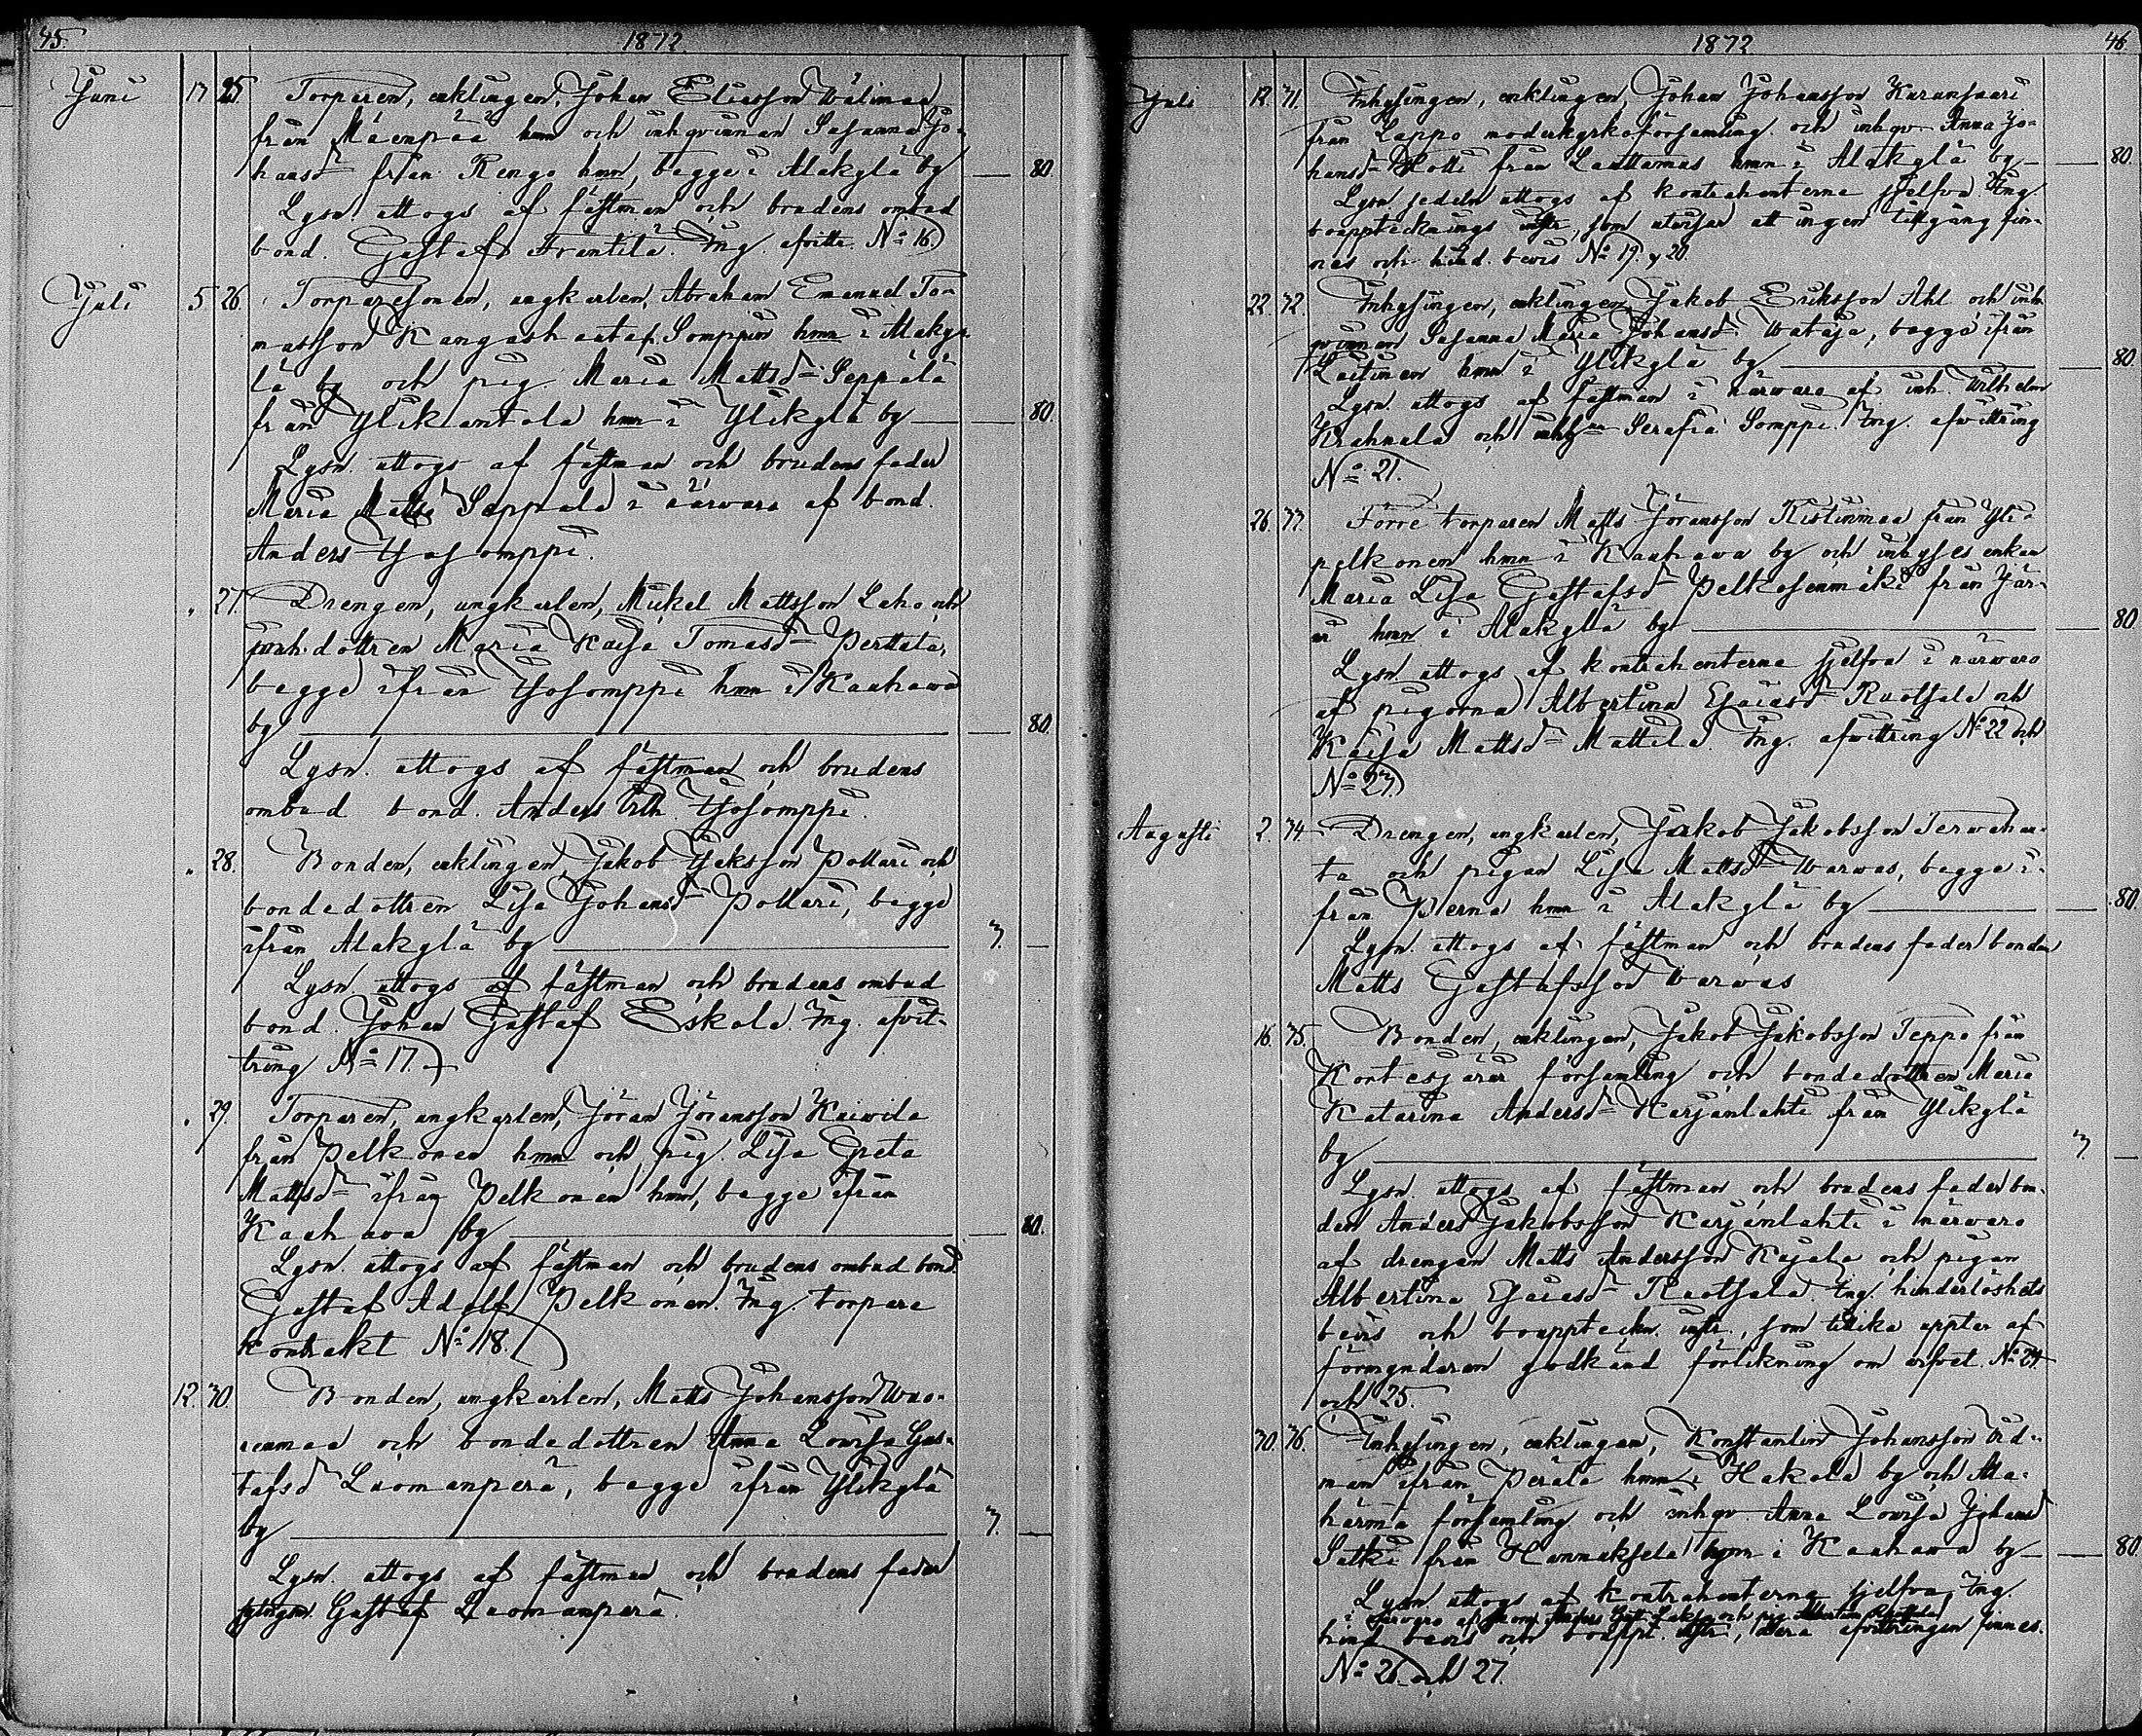 45.
1872
Juni 17 25. Torparen, enklingen, Johan Eliasson Wälimaa
från Mäenpää hmn och inhqvinnan Susanna Jo-
hansd från Rengo hmn, begge i Alakylä by — 80.
Lysn. uttogs af fästman och brudens ombud
bond. Gustaf Frantila. Ing. afvittr. No 16.
Juli 5 26. Torparesonen, ungkarlen, Abraham Emanuel To-
masson Kangas hmn i Alaky-
lä by och pig. Maria Mattsd Seppälä
från Ylikantola hmn i Ylikylä by — 80.
Lysn. uttogs af fästman och brudens fader
Seppälä i närvaro af bond.
Anders Ysosomppi.
" 27. Drengen, ungkarlen, Mickel Mattsson Laho och
inh.dottren Maria Kaisa Tomasd Perttula,
begge ifrån Ysosomppi hmn i Kauhava
by — 80.
Lysn. uttogs af fästman och brudens
ombud bond. Anders Ysosomppi.
" 28. Bonden, enklingen, Jakob Pollari och
bondedottren Lisa Johansd Pollari, begge
ifrån Alakylä by — 3. —
Lysn. uttogs af fästman och brudens ombud
bond. Johan Gustaf Eskola. Ing. afvit-
tring No 17.
" 29. Torparen, ungkarlen, Jöran Jöransson Kaivila
från Pelkonen hmn och pig. Lisa Greta
Mattsd ifrån Pelkonen hmn, begge ifrån
Kauhava by — 80.
Lysn. uttogs af fästman och brudens ombud bond.
Gustaf Adolf Pelkonen. Ing. torpare
kontrakt No 18.
12. 30. Bonden, ungkarlen, Matts Johansson Wuo-
renmaa och bondedottren Anna Lovisa Gus-
tafsd Luomanperä, begge ifrån Ylikylä
by — 3. —
Lysn. uttogs af fästman och brudens fader
Gustaf Luomanperä.
1872
46.
Juli 12. 31. Inhysingen, enklingen, Johan Johansson Kuransaari
från Lappo moderkyrkoförsamling och inhqv. Anna Jo-
hansd Hotti från Lauttamus hmn i Alakylä by — 80.
Lysn. sedeln uttogs af kontrahenterne sjelfva. Ing.
boupptecknings instr., som utvisar att ingen tillgång fin-
nes och hind. bevis No 19. & 20.
22. 32. Inhysingen, enklingen, Jakob Eriksson Ahl och inh-
qvinnan Susanna Maria Johansd Wataja, begge ifrån
Laitinen hmn i Ylikylä by — 80.
Lysn. uttogs af fästman i närvaro af inh. Wilhelm
Krahnala och Serafia Somppi. Ing. afvittring
No 21.
26. 33. Förre torparen Matts Jöransson Ristinmaa från Yli-
pelkonen hmn i Kauhava by och inhyses enkan
Maria Lisa Gustafsd Pelkosenmäki från Jär-
vi hmn i Alakylä by — 80.
Lysn. uttogs af kontrahenterna sjelfva i närvaro
af pigorna Albertina Esaiasd Ruotsala och
Kaisa Mattsd Mattila. Ing. afvittring No 22 och
No 23.
Augusti 2. 34. Drengen, ungkarlen, Jakob Jakobsson Tervahau-
ta och pigan Lisa Mattsd Warvas, begge i-
från Perna hmn i Alakylä by — 80.
Lysn. uttogs af fästman och brudens fader bonden
Matts Gustafsson Warvas
16. 35. Bonden, enklingen, Jakob Jakobsson Teppo från
Kortesjärvi församling och bondedottren Maria
Katarina Andersd Karjanlahti från Ylikylä
by — 3 —
Lysn. uttogs af fästman och brudens fader bon-
den Anders Jakobsson Karjanlahti i närvaro
af drengen Matts Andersson Kujala och pigan
Albertina Esaiasd Ruotsala. Ing. hinderlöshets
bevis och bouppteckn. instr., som tillika upptar af
förmyndaren godkänd förlikning om arfvet. No 24
och 25.
30. 36. Inhysingen, enklingen, Konstantin Johansson Wid-
man ifrån Perälä hmn i Hakola by och Ala-
härmä församling och inhqv. Anna Lovisa Johansd
Salki från Hannuksela hmn i Kauhava by — 80.
Lysn. uttogs af kontrahenterna sjelfva. Ing.
i närvaro af Gust. och pig. Albertina Ruotsala
hind. bevis och bouppt. instr., afvittringen finnes.
No 26. och 27.